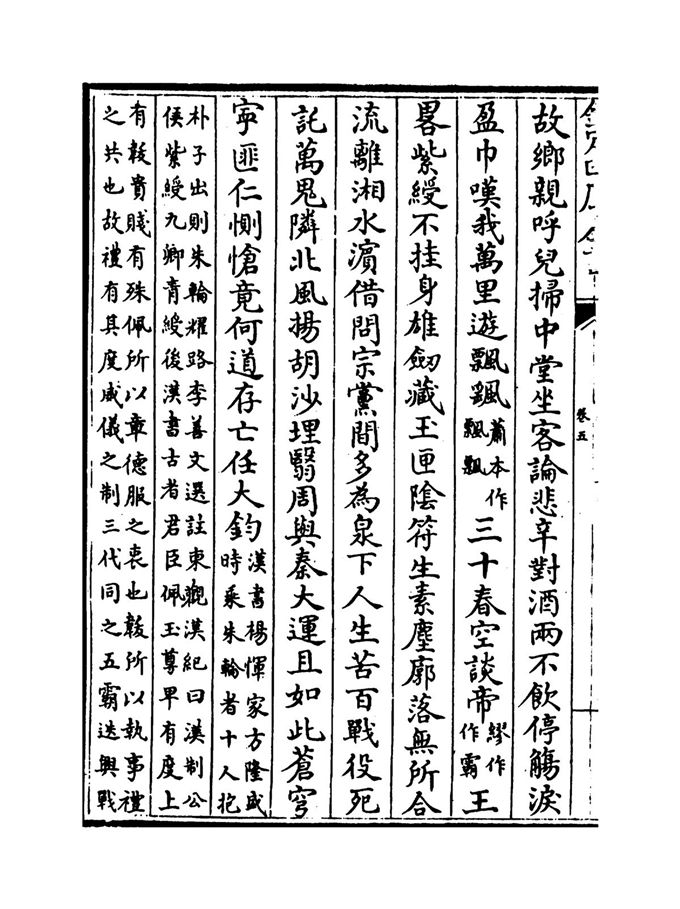 卷五
故鄉親呼兒掃中堂坐客論悲辛對酒兩不飲停觴淚
盈巾嘆我萬里遊飄颻蕭本作飄飄三十春空談帝繆作作霸王
畧紫綬不挂身雄劔藏玉匣陰符生素塵廓落無所合
流離湘水濵借問宗黨間多為泉下人生苦百戰役死
託萬鬼隣北風揚胡沙埋翳周與秦大運且如此蒼穹
寜匪仁惻愴竟何道存亡任大鈞漢書楊惲家方隆盛
時乗朱輪者十人抱
朴子出則朱輪耀路李善文選註東觀漢紀曰漢制公
侯紫綬九卿青綬後漢書古者君臣佩玉尊卑有度上
有韍貴賤有殊佩所以章德服之衷也韍所以執事禮
之共也故禮有其度威儀之制三代同之五霸迭興戰